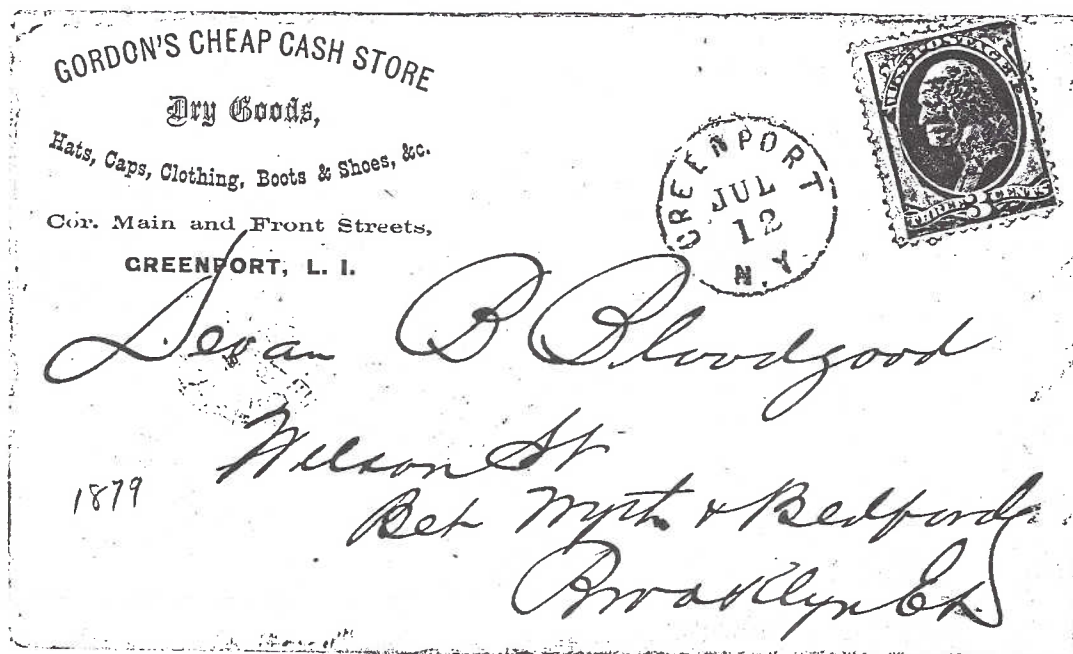 GORDON'S CHEAP CASH STORE
Dry Goods,
Hats, Caps, Clothing, Boots & Shoes, &c.
Cor. Main and Front Streets,
GREENPORT, L. I.
GREENPORT
JUL
12
N.Y.
U.S. POSTAGE
THREE 3 CENTS
Devan B Bloodgood
Wilson St
Bet Wyth & Bedford
Brooklyn
1879